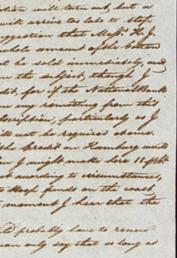 ition will turn out, but as
will arrive too late to stop
uggestion that Messrs H. J.
able amount of the Cotton
t be sold immediately, and
on the subject, though I
dit, for if the National Bank
any resulting from this
particularly as I
will not be required at once.
the Credit on Hamburg would
I might make
t according to circumstances,
to keep funds on the road,
moment I hear that the
probably have to renew
can only say that as long as